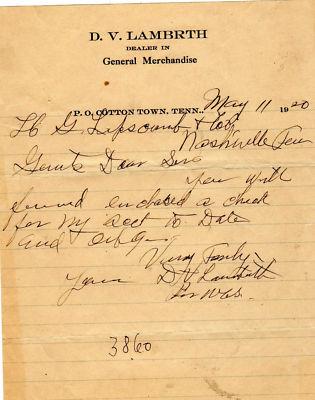 D. V. LAMBRTH
DEALER IN
General Merchandise
P. O. COTTON TOWN, TENN., May 11 1920
H G Lipscomb & Co
Nashville Ten
Gents Dear Sirs
you will
find enclosed a check
for my acct to Date
and oblige
Very Truly
Yours D V Lambrth
Per
3860